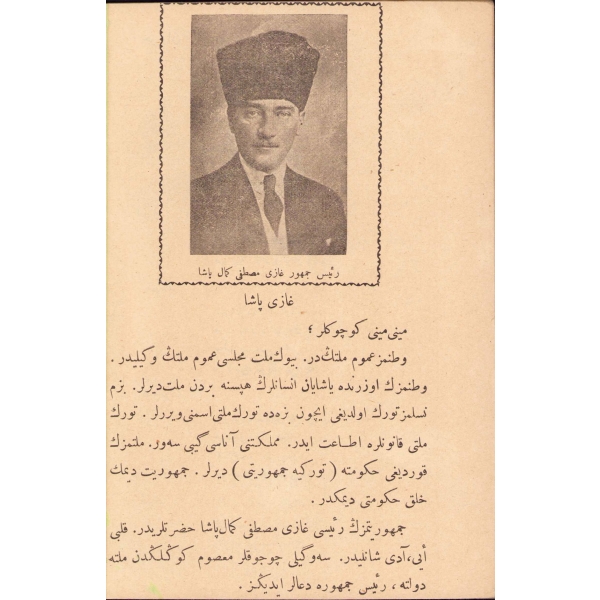 رئیس جمهور غازی مصطفی كمال پاشا
غازی پاشا
مینی مینی كوچوكلر ؛
وطنمز عموم ملتڭدر. بیوك ملت مجلسی عموم ملتڭ وكیلیدر.
وطنمزك اوزرنده یاشایان انسانلرڭ هپسنه بردن ملت دیرلر. بزم
نسلمز تورك اولدیغی ایچون بزه ده تورك ملتی اسمنی ویررلر. تورك
ملتی قانونلره اطاعت ایدر. مملكتنی آناسی گیبی سه ور. ملتمزك
قوردیغی حكومته ( توركیه جمهوریتی ) دیرلر. جمهوریت دیمك
خلق حكومتی دیمكدر.
جمهوریتمزڭ رئیسی غازی مصطفی كمال پاشا حضرتلریدر. قلبی
أیی، آدی شانلیدر. سه وگیلی چوجوقلر معصوم كوڭلڭزدن ملته
دولته ، رئیس جمهوره دعالر ایدیڭز.